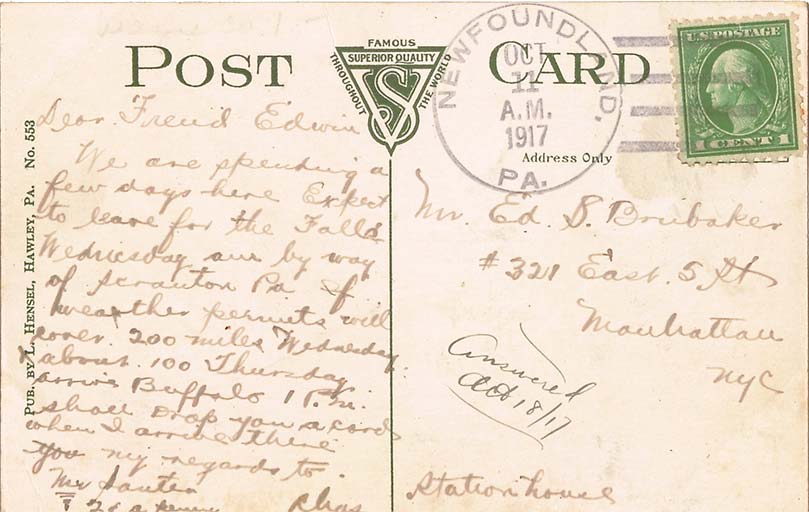 POST CARD
FAMOUS
SUPERIOR QUALITY
THROUGHOUT THE WORLD
VS
NEWFOUNDLAND,
OCT
11
A.M.
1917
PA.
U.S. POSTAGE
1 CENT 1
Address Only
PUB. BY L. HENSEL, HAWLEY, PA. No. 553
Dear Freind Edwin
We are spending a
few days here Expect
to leave for the Falls
Wednesday am by way
of Scranton Pa If
weather permits will
cover 200 miles Wednesday
about 100 Thursday
arrive Buffalo 1 P.M.
shall Drop you a card
when I arrive there
you my regards to
Mr
Chas
Mr. Ed. S. Brubaker
# 321 East. 5 St
Manhattan
NYC
Answered
Oct 18/17
Station house